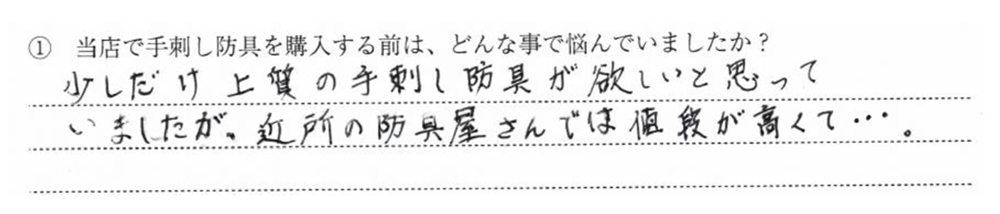 ① 当店で手刺し防具を購入する前は、どんな事で悩んでいましたか？
少しだけ上質の手刺し防具が欲しいと思って
いましたが。近所の防具屋さんでは値段が高くて…。